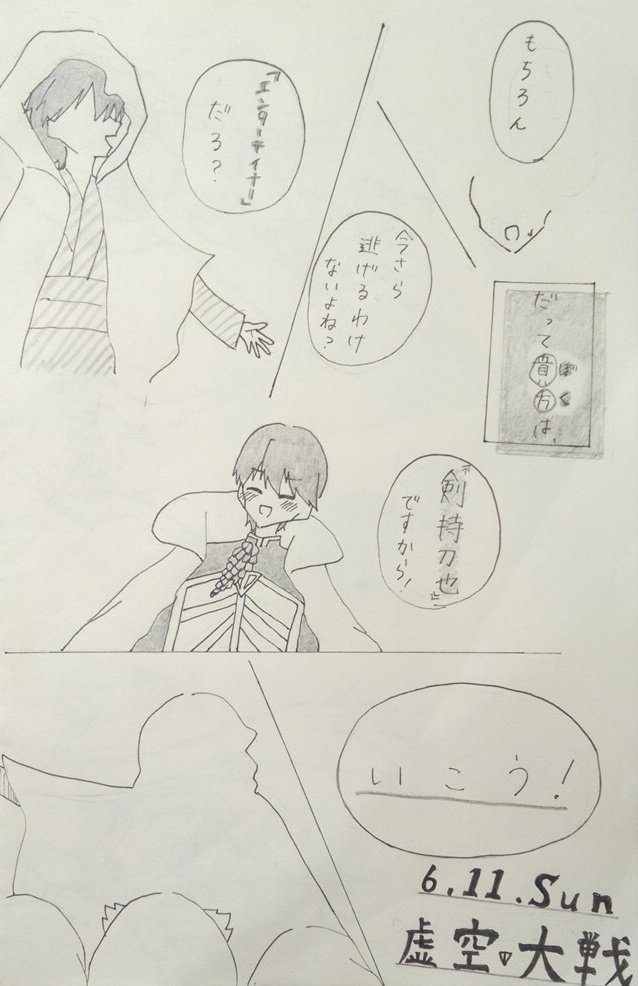 もちろん
だって貴方は、
ぼく
今さら
逃げるわけ
ないよね?
『エンターテイナー』
だろ?
『剣持刀也』
ですから!
いこう!
6.11.Sun
虚空▽大戦